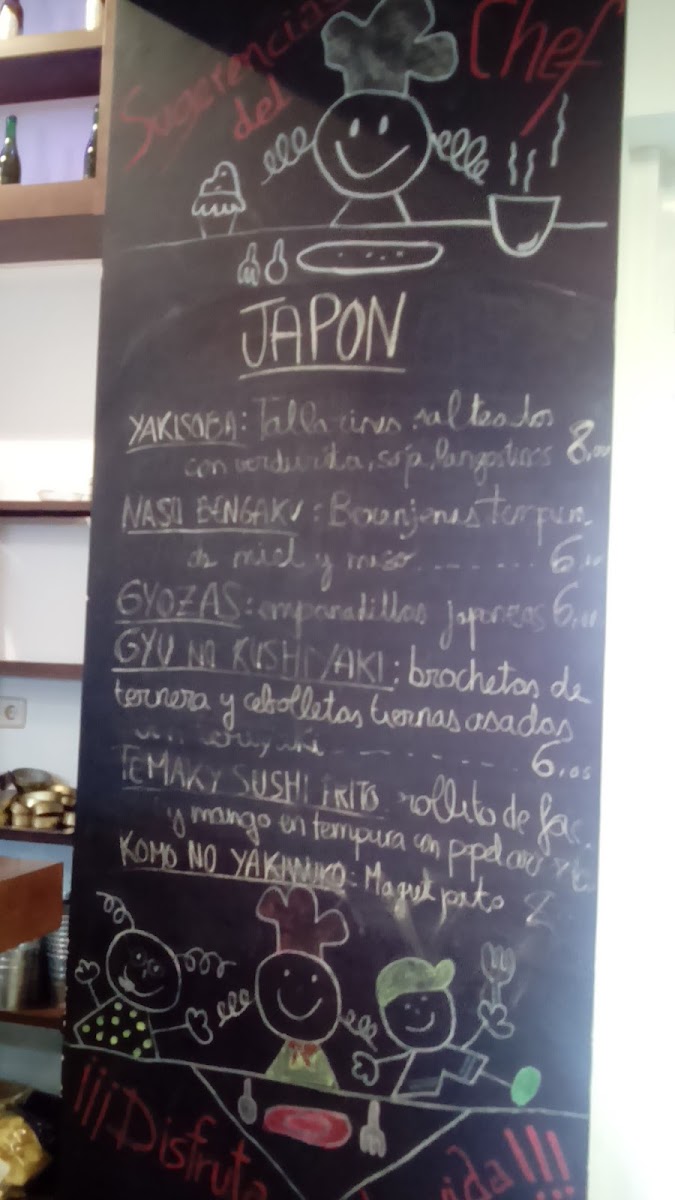 Sugerencias del Chef
JAPON
YAKISOBA: Tallarines salteados
con verdurita, soja, langostinos 8,00
NASU DENGAKU: Berenjenas tempura
de miel y miso -------- 6,00
GYOZAS: empanadillas japonesas 6,00
GYU NO KUSHIYAKI: brochetas de
ternera y cebolletas tiernas asados
6,05
TEMAKY SUSHI FRITO rollito de
y mango en tempura con
KOMO NO YAKINIKO: Magret pato
¡¡¡Disfruta